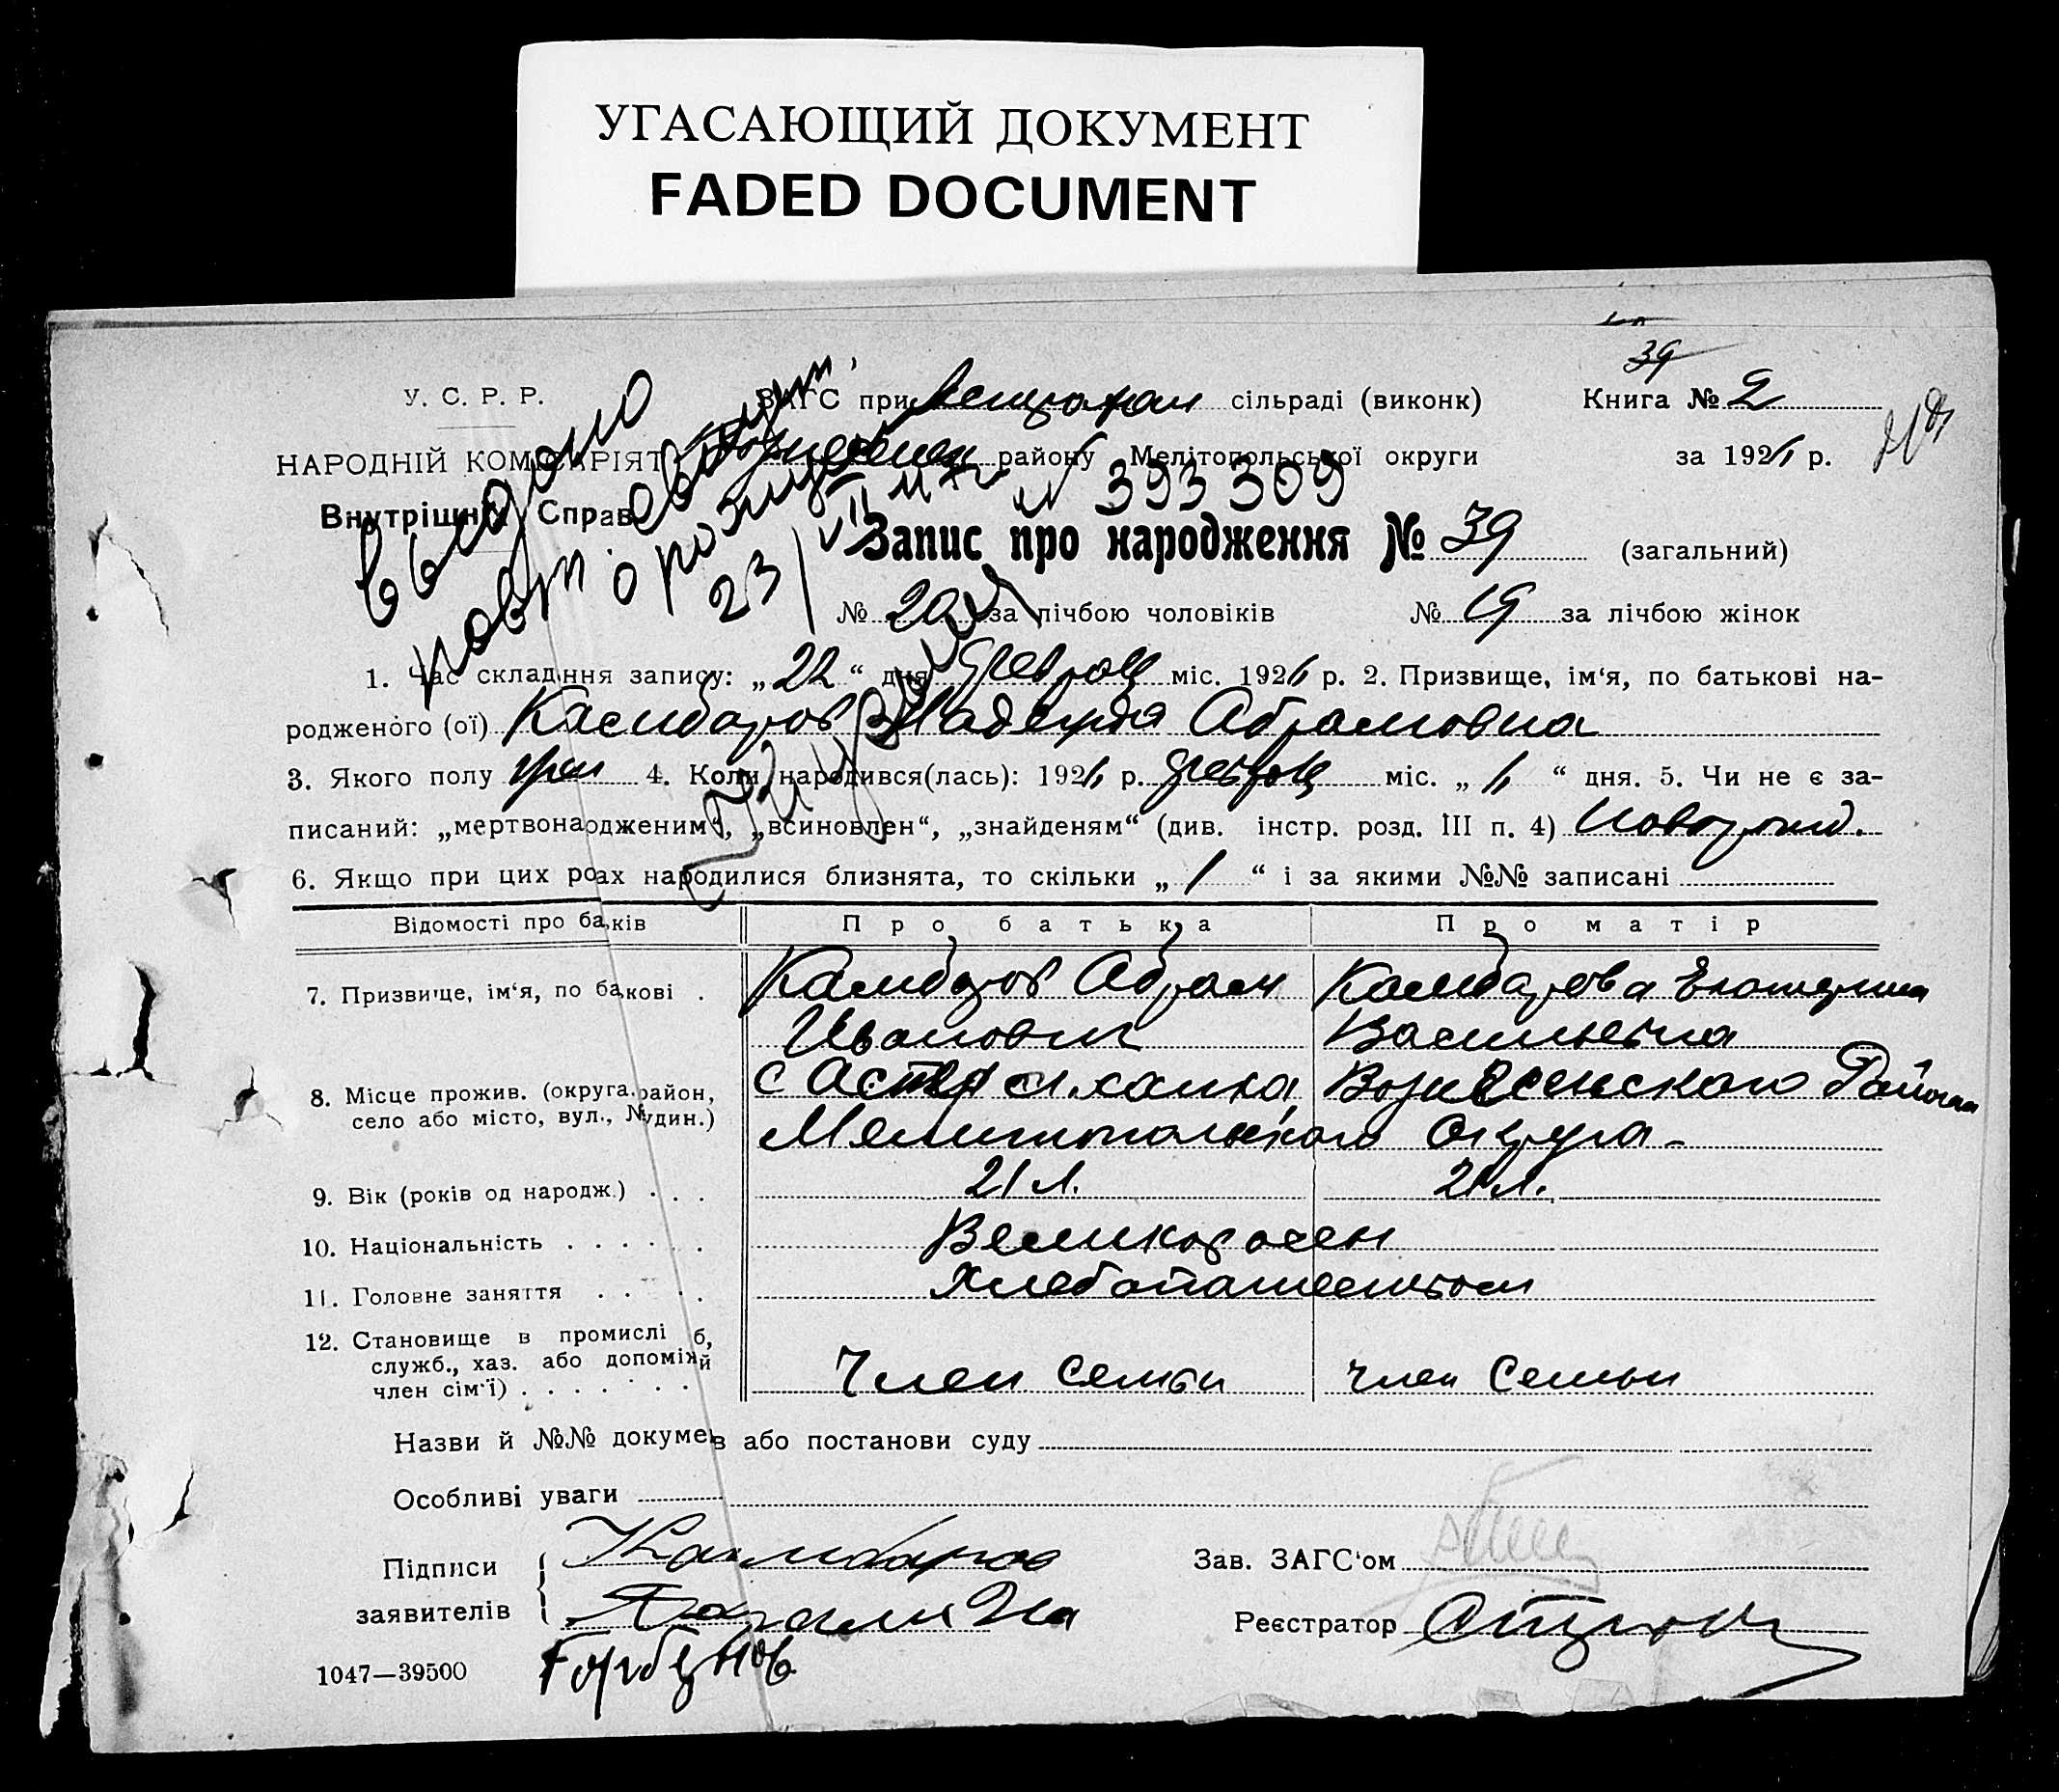 УГАСАЮЩИЙ ДОКУМЕНТ
FADED DOCUMENT
39
У. С. Р. Р.
ЗАГС при сільраді (виконк)
Книга № 2
НАРОДНІЙ КОМІСАРІЯТ
району Мелітопольської округи
за 192 р.
Внутрішніх Справ
выдано
повторн. свид
о рожд
23/VII
№ 393309
Запис про народження № 39 (загальний)
№ 20 за лічбою чоловіків № 19 за лічбою жінок
1. Час складання запису: „22“ дня февраля міс. 192 р. 2. Призвище, ім‘я, по батькові на-
родженого (ої) Камбаров Надежда Абрамовна
3. Якого полу жен 4. Коли народився(лась): 192 р. февраля міс. „ “ дня. 5. Чи не є за-
писаний: „мертвонародженим“, „всиновлен“, „знайденям“ (див. інстр. розд. III п. 4) Новорожд.
6. Якщо при цих родах народилися близнята, то скільки „1“ і за якими №№ записані
Відомості про батьків Про батька Про матір
7. Призвище, ім‘я, по батькові . Камбаров Абрам Камбарова Екатерина
Иванович Васильевна
8. Місце прожив. (округа, район, с Астраханка, Вознесенского Района
село або місто, вул., № дин.) Мелитопольского Округа
9. Вік (років од народж.) . . . 21 л. 21 л.
10. Національність . . . . . . Великоросен
11. Головне заняття . . . . Хлебопашеством
12. Становище в промислі
служб., хаз. або допоміжний
член сім‘ї) . . . . . . . Член семьи член семьи
Назви й №№ документів або постанови суду
Особливі уваги
Підписи Камбаров Зав. ЗАГС‘ом
заявителів Реєстратор
1047—39500 Горбунов